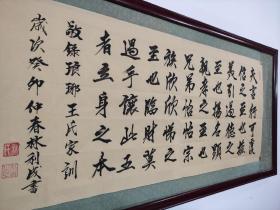 夫言行可覆
信之至也推
美引過德之
至也揚名顯
親孝之至也
兄弟怡怡宗
族欣欣悌之
至也臨財莫
過乎讓此五
者立身之本
敬錄琅琊王氏家訓
歲次癸卯仲春林利成書